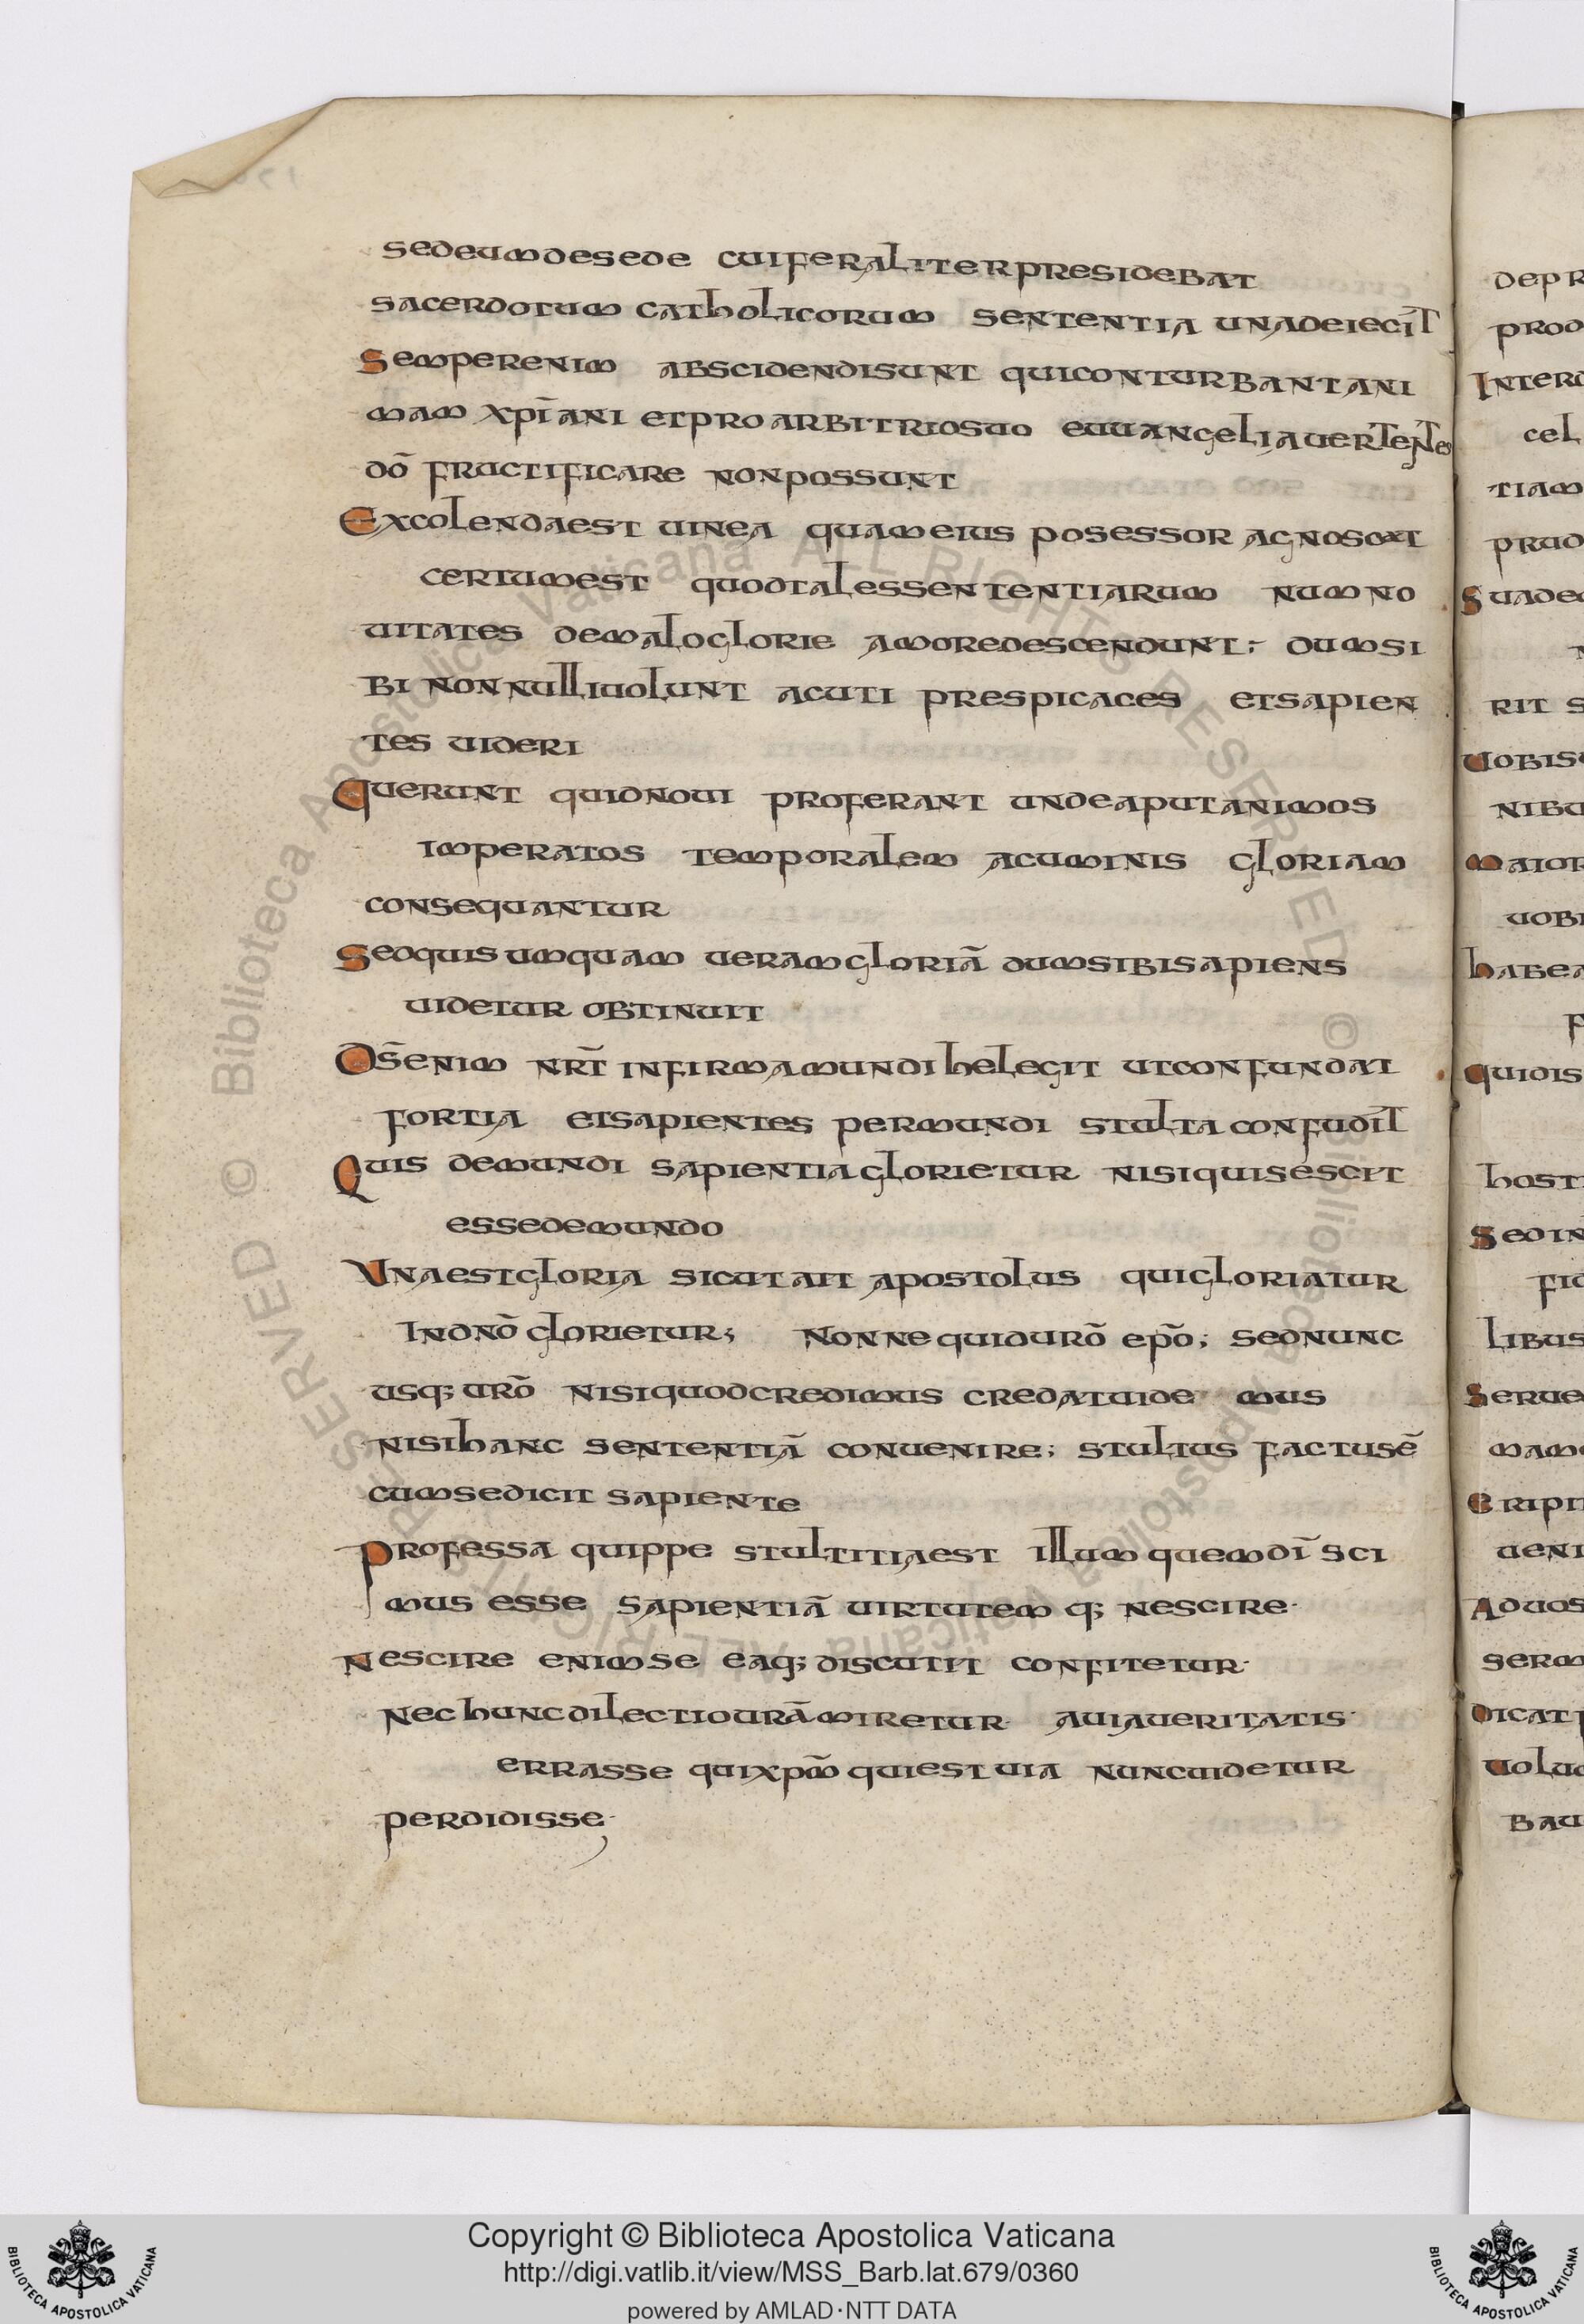 sedeum de sede cui feraliter presidebat
sacerdotum catholicorum sententia una deiecit
Semper enim abscidendi sunt qui conturbant ani
mam xp̄iani et pro arbitrio suo euuangelia uertentes
dō fructificare non possunt
Excolenda est uinea quam eius posessor agnoscat
certum est quod tales sententiarum num no
uitates de malo glorie amore descendunt; dum si
bi nonnulli uolunt acuti prespicaces et sapien
tes uideri
Querunt quid noui proferant unde aput animos
imperatos temporalem acuminis gloriam
consequantur
Sed quis umquam ueram gloriā dum sibi sapiens
uidetur obtinuit
Ds̄ enim nr̄t infirma mundi helegit ut confundat
fortia et sapientes per mundi stulta confudit
Quis de mundi sapientia glorietur nisi qui se scit
esse de mundo
Una est gloria sicut ait apostolus qui gloriatur
In dnō glorietur; Nonne quid urō epō; sed nunc
usq; urō nisi quod credimus credat uide mus
nisi hanc sententiā conuenire; stultus factus ē
cum se dicit sapiente
Professa quippe stultitia est illum quem dī sci
mus esse sapientiā uirtutem q; nescire·
Nescire enim se eaq; discutit confitetur·
Nec hunc dilectio urā miretur· a uia ueritatis·
errasse qui xpm̄ qui est uia nunc uidetur
perdidisse·
prod
cel
tiam
rit s
nibu
uobi
host
Libus
ueni
Aduos
serm
bau
Copyright © Biblioteca Apostolica Vaticana
http://digi.vatlib.it/view/MSS_Barb.lat.679/0360
powered by AMLAD·NTT DATA
BIBLIOTECA APOSTOLICA VATICANA
BIBLIOTECA APOSTOLICA VATICANA